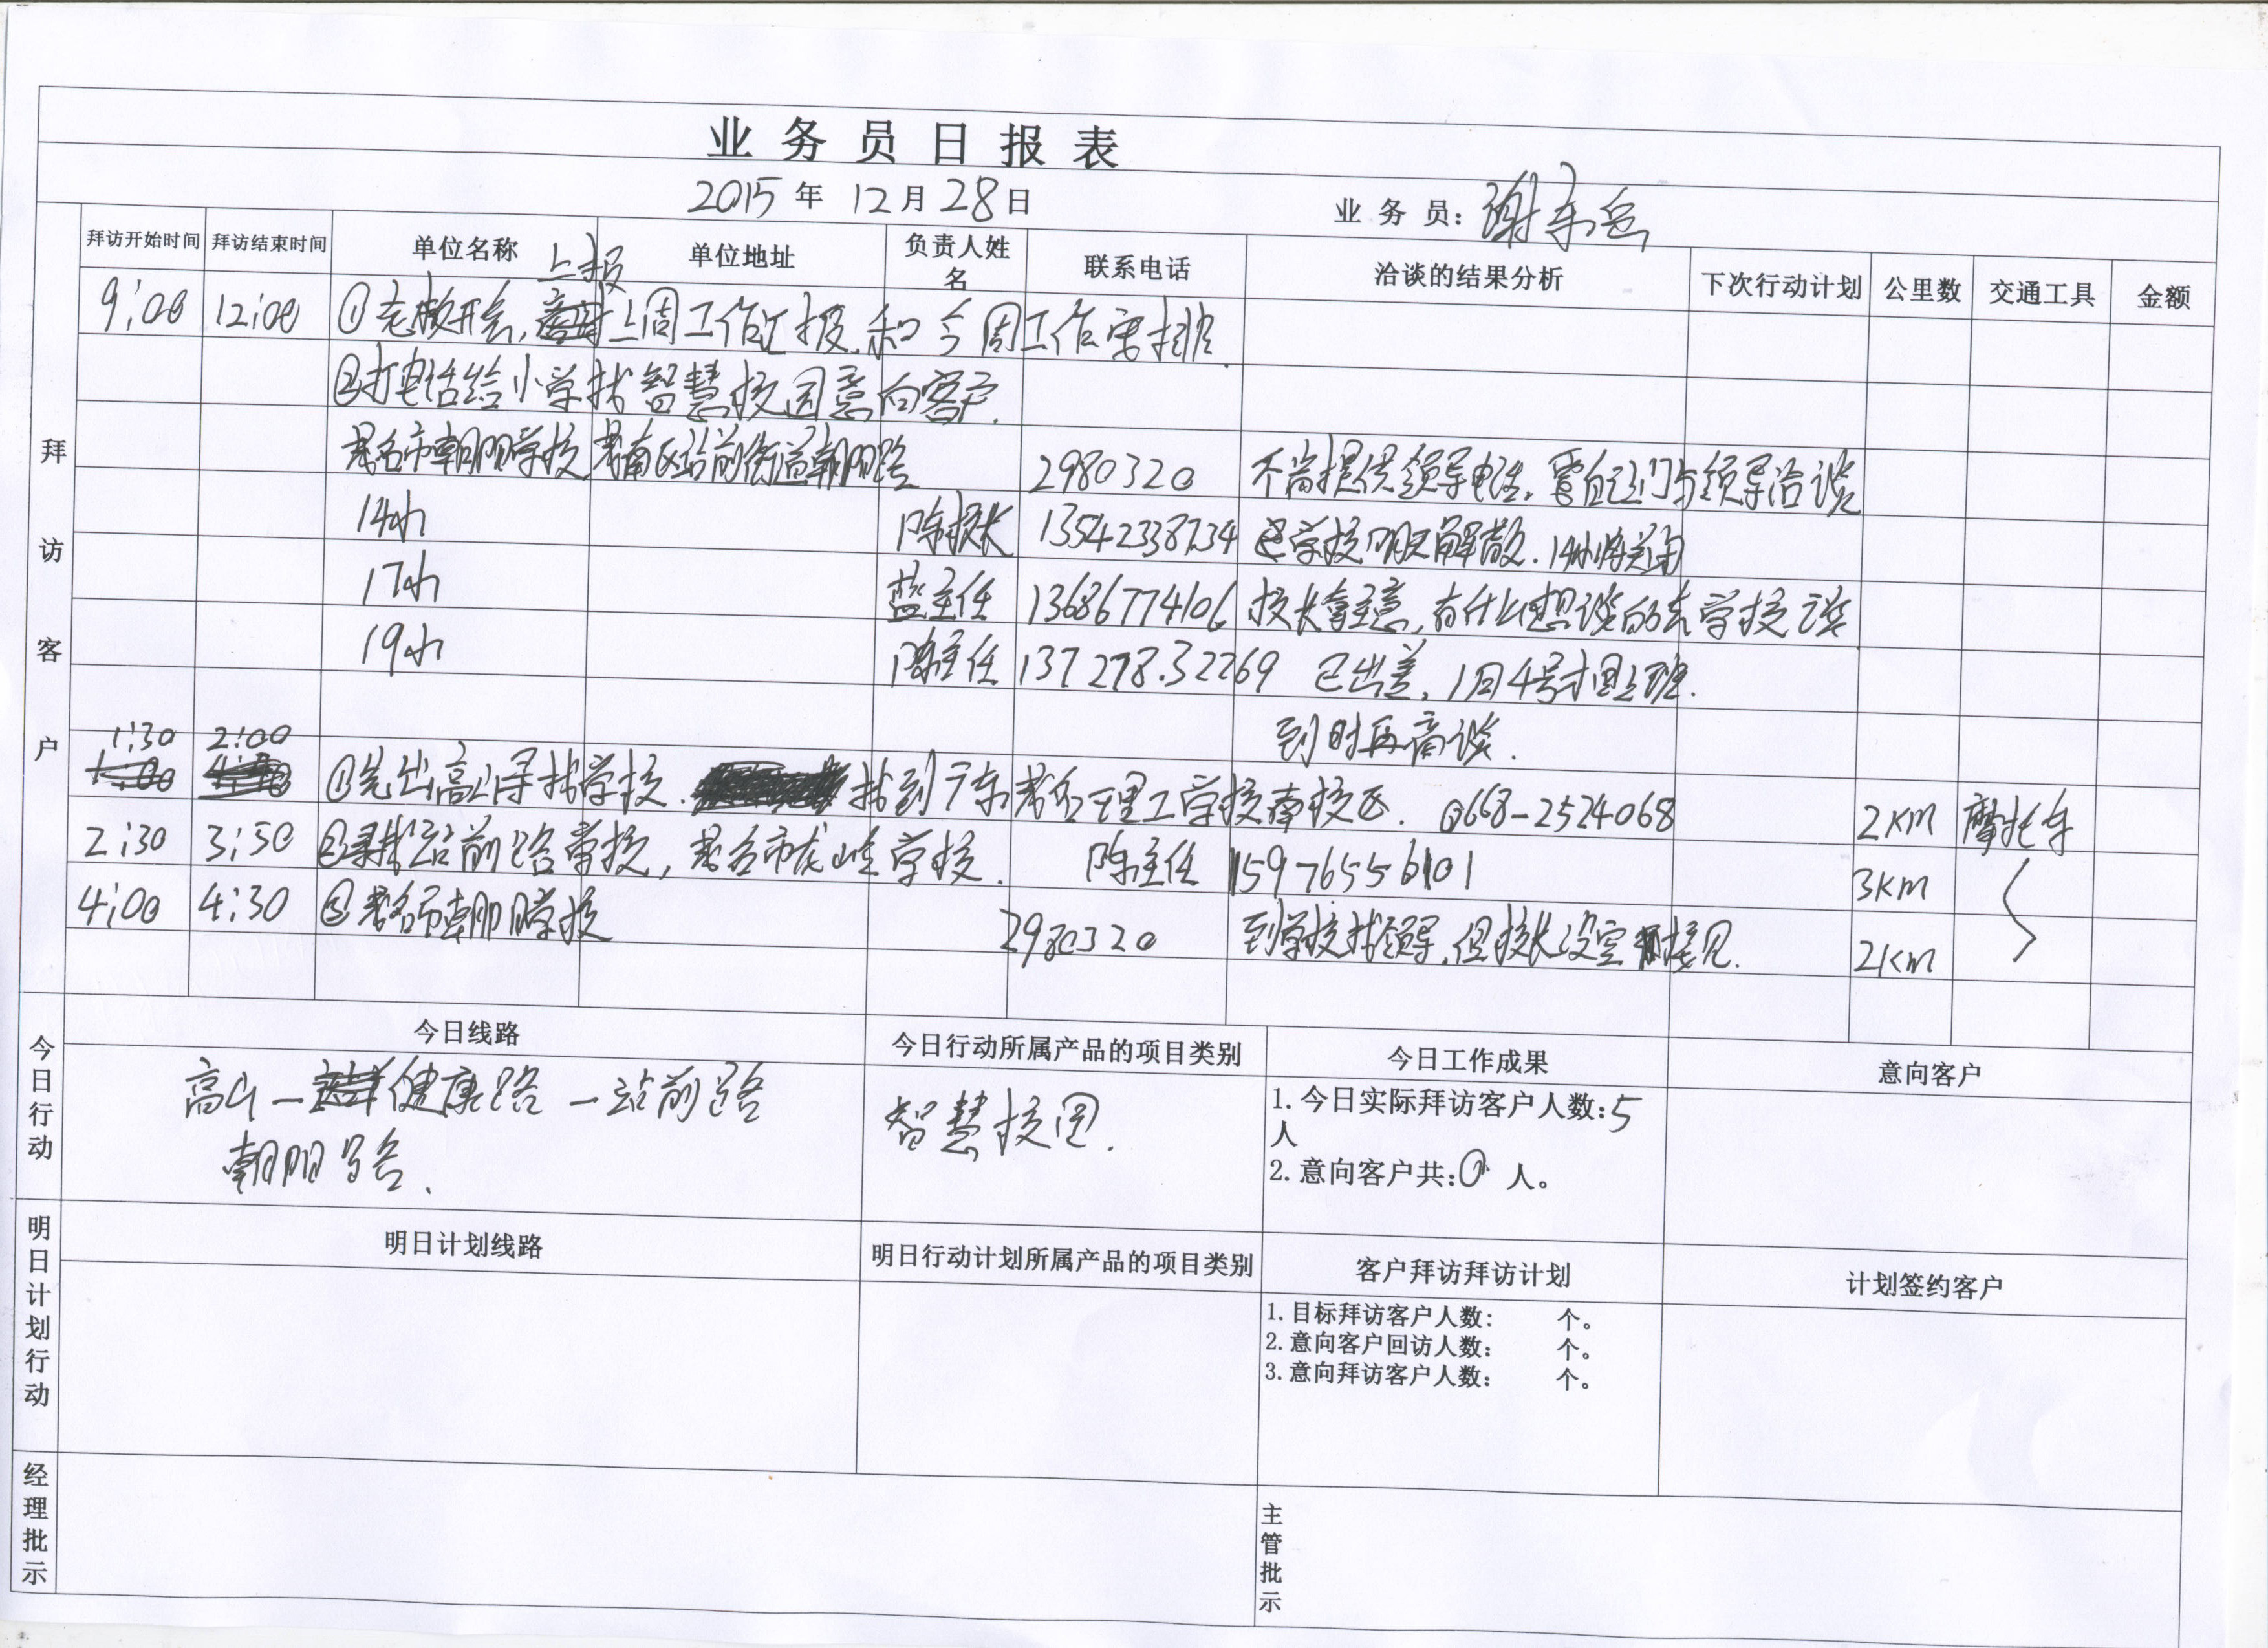 业务员日报表
2015年 12月28日 业务员:谢
拜访客户
拜访开始时间 拜访结束时间 单位名称 单位地址 负责人姓名 联系电话 洽谈的结果分析 下次行动计划 公里数 交通工具 金额
上报
9:00 12:00 ①老板开会,上周工作汇报.和今周工作安排.
②打电话给小学找智慧校园意向客户.
茂名市朝阳学校 茂南区站前街道朝阳路 2980320 不肯提供领导电话,需自上门与领导洽谈
14小 陈校长 13542338734 学校明天解散.14小将关闭
17小 蓝主任 13686774106 校长拿主意,有什么想谈的去学校谈
19小 陈主任 13727832269 已出差,1月4号才回上班.
到时再商谈.
1:30 2:00
①先出高山寻找学校. 找到广东茂名理工学校南校区. 0668-2524068 2KM 摩托车
2:30 3:50 ②寻找站前路学校,茂名市龙岭学校. 陈主任 15976556101 3KM
4:00 4:30 ③茂名市朝阳学校 2980320 到学校找领导,但校长没空接见. 2KM
今日行动
今日线路 今日行动所属产品的项目类别 今日工作成果 意向客户
高山—健康路—站前路
朝阳路.
智慧校园.
1.今日实际拜访客户人数:5
人
2.意向客户共:0 人。
明日计划行动
明日计划线路 明日行动计划所属产品的项目类别 客户拜访拜访计划 计划签约客户
1.目标拜访客户人数: 个。
2.意向客户回访人数: 个。
3.意向拜访客户人数: 个。
经理批示
主管批示